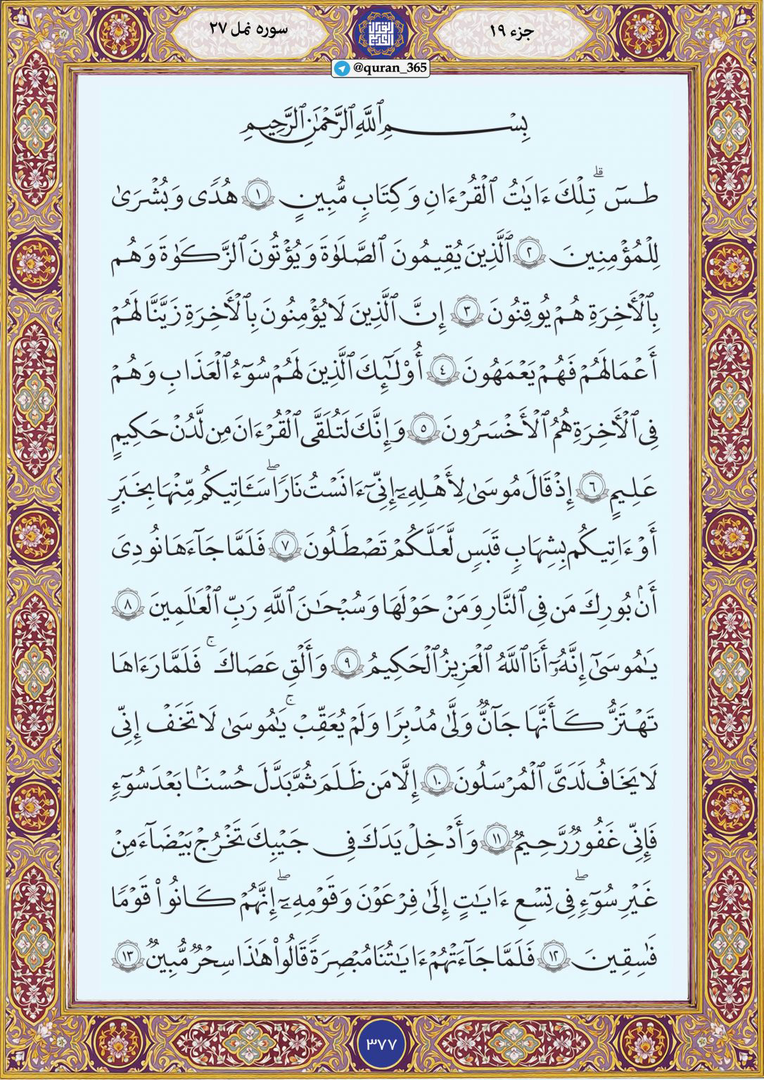 سوره نمل ۲۷
جزء ۱۹
@quran_365
بِسْمِ ٱللَّهِ ٱلرَّحْمَٰنِ ٱلرَّحِيمِ
طسٓ ۚ تِلْكَ ءَايَٰتُ ٱلْقُرْءَانِ وَكِتَابٍ مُّبِينٍ ۝١ هُدًى وَبُشْرَىٰ
لِلْمُؤْمِنِينَ ۝٢ ٱلَّذِينَ يُقِيمُونَ ٱلصَّلَوٰةَ وَيُؤْتُونَ ٱلزَّكَوٰةَ وَهُم
بِٱلْأَخِرَةِ هُمْ يُوقِنُونَ ۝٣ إِنَّ ٱلَّذِينَ لَا يُؤْمِنُونَ بِٱلْأَخِرَةِ زَيَّنَّا لَهُمْ
أَعْمَالَهُمْ فَهُمْ يَعْمَهُونَ ۝٤ أُوْلَٰٓئِكَ ٱلَّذِينَ لَهُمْ سُوٓءُ ٱلْعَذَابِ وَهُمْ
فِي ٱلْأَخِرَةِ هُمُ ٱلْأَخْسَرُونَ ۝٥ وَإِنَّكَ لَتُلَقَّى ٱلْقُرْءَانَ مِن لَّدُنْ حَكِيمٍ
عَلِيمٍ ۝٦ إِذْ قَالَ مُوسَىٰ لِأَهْلِهِۦٓ إِنِّيٓ ءَانَسْتُ نَارًا سَـَٔاتِيكُم مِّنْهَا بِخَبَرٍ
أَوْ ءَاتِيكُم بِشِهَابٍ قَبَسٍ لَّعَلَّكُمْ تَصْطَلُونَ ۝٧ فَلَمَّا جَآءَهَا نُودِيَ
أَنۢ بُورِكَ مَن فِي ٱلنَّارِ وَمَنْ حَوْلَهَا وَسُبْحَٰنَ ٱللَّهِ رَبِّ ٱلْعَٰلَمِينَ ۝٨
يَٰمُوسَىٰٓ إِنَّهُۥٓ أَنَا ٱللَّهُ ٱلْعَزِيزُ ٱلْحَكِيمُ ۝٩ وَأَلْقِ عَصَاكَ ۚ فَلَمَّا رَءَاهَا
تَهْتَزُّ كَأَنَّهَا جَآنٌّ وَلَّىٰ مُدْبِرًا وَلَمْ يُعَقِّبْ ۚ يَٰمُوسَىٰ لَا تَخَفْ إِنِّي
لَا يَخَافُ لَدَيَّ ٱلْمُرْسَلُونَ ۝١٠ إِلَّا مَن ظَلَمَ ثُمَّ بَدَّلَ حُسْنًۢا بَعْدَ سُوٓءٍ
فَإِنِّي غَفُورٌ رَّحِيمٌ ۝١١ وَأَدْخِلْ يَدَكَ فِي جَيْبِكَ تَخْرُجْ بَيْضَآءَ مِنْ
غَيْرِ سُوٓءٍ ۖ فِي تِسْعِ ءَايَٰتٍ إِلَىٰ فِرْعَوْنَ وَقَوْمِهِۦٓ ۖ إِنَّهُمْ كَانُوا۟ قَوْمًا
فَٰسِقِينَ ۝١٢ فَلَمَّا جَآءَتْهُمْ ءَايَٰتُنَا مُبْصِرَةً قَالُوا۟ هَٰذَا سِحْرٌ مُّبِينٌ ۝١٣
۳۷۷